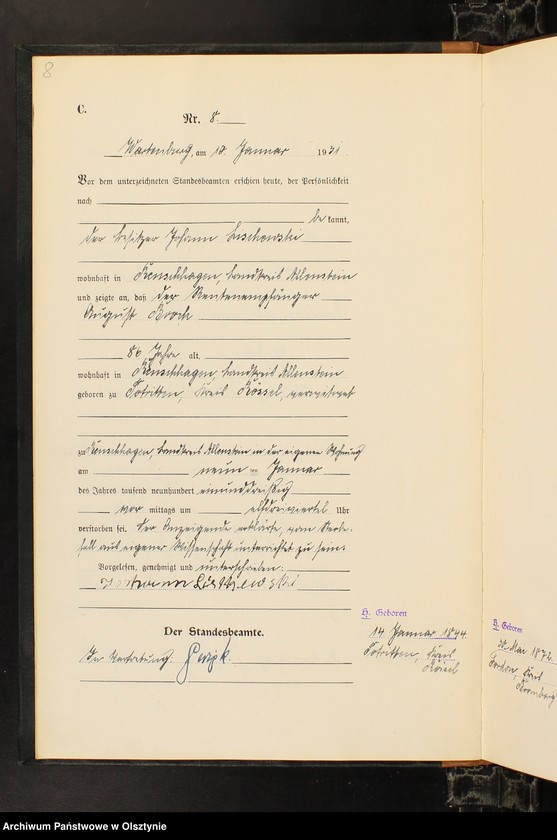 8
C.
Nr. 8.
Wartenburg, am 10. Januar 1931.
Vor dem unterzeichneten Standesbeamten erschien heute, der Persönlichkeit
nach
be kannt,
der Besitzer Johann
wohnhaft in Landkreis Allenstein
und zeigte an, daß der Rentenempfänger
August
86 Jahre alt,
wohnhaft in Landkreis Allenstein
geboren zu Totritten, Kreis Rössel,
zu Landkreis Allenstein in der eigenen Wohnung
am neun ten Januar
des Jahres tausend neunhundert einunddreißig
vor mittags um elfdreiviertel Uhr
verstorben sei. Der Anzeigende erklärte, vom Sterbe-
fall aus eigener Wissenschaft unterrichtet zu sein.
Vorgelesen, genehmigt und unterschrieben:
Der Standesbeamte.
In Vertretung.
H. Geboren
14 Januar 1844.
Totritten, Kreis
Rössel
H. Geboren
Mai 1872.
Kreis
Bromberg
Archiwum Państwowe w Olsztynie